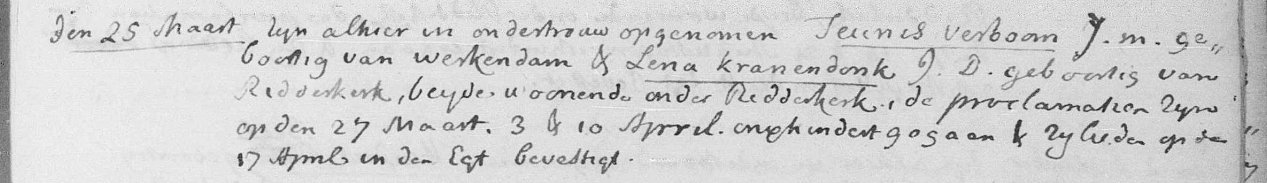 den 25 Maart zyn alhier in ondertrouw opgenomen Teunis Verboom J. m. ge„
boortig van werkendam & Lena Kranendonk J. D. geboortig van
Ridderkerk, beyde woonende onder Ridderkerk, de proclamatien zyn
op den 27 Maart. 3 & 10 April. ongehindert gegaan & zylieden op den
17 April in den Egt bevestigt.